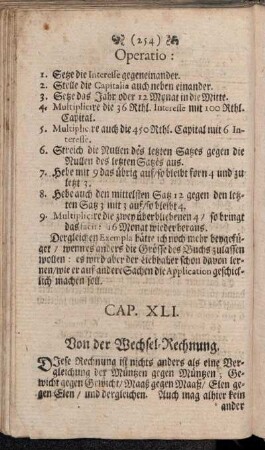 (254)
Operatio:
1. Setze die Interesse gegeneinander.
2. Stelle die Capitalia auch neben einander.
3. Setze das Jahr oder 12 Monat in die Mitte.
4. Multiplicire die 36 Rthl. Interesse mit 100 Rthl.
Capital.
5. Multiplicire auch die 450 Rthl. Capital mit 6 In-
teresse.
6. Streich die Nullen des letzten Satzes gegen die
Nullen des letzten Satzes aus.
7. Hebe mit 9 das übrig auf/ so bleibt forn 4 und zu
letzt 3.
8. Hebe auch den mittelsten Satz 12 gegen den letz-
ten Satz 3 mit 3 auf/ so bleibt 4.
9. Multiplicire die zwey überbliebenen 4/ so bringt
das facit 16 Monat wieder heraus.
Dergleichen Exempla hätte ich noch mehr beygefü-
get/ wenn es anders die Grösse des Buchs zulassen
wollen: es wird aber der Liebhaber schon davon ler-
nen/ wie er auf andere Sachen die Application geschick-
lich machen soll.
CAP. XLI.
Von der Wechsel-Rechnung.
DJese Rechnung ist nichts anders als eine Ver-
gleichung der Müntzen gegen Müntzen; Ge-
wicht gegen Gewicht/ Maaß gegen Maaß/ Elen ge-
gen Elen/ und dergleichen. Auch mag alhier kein
ander